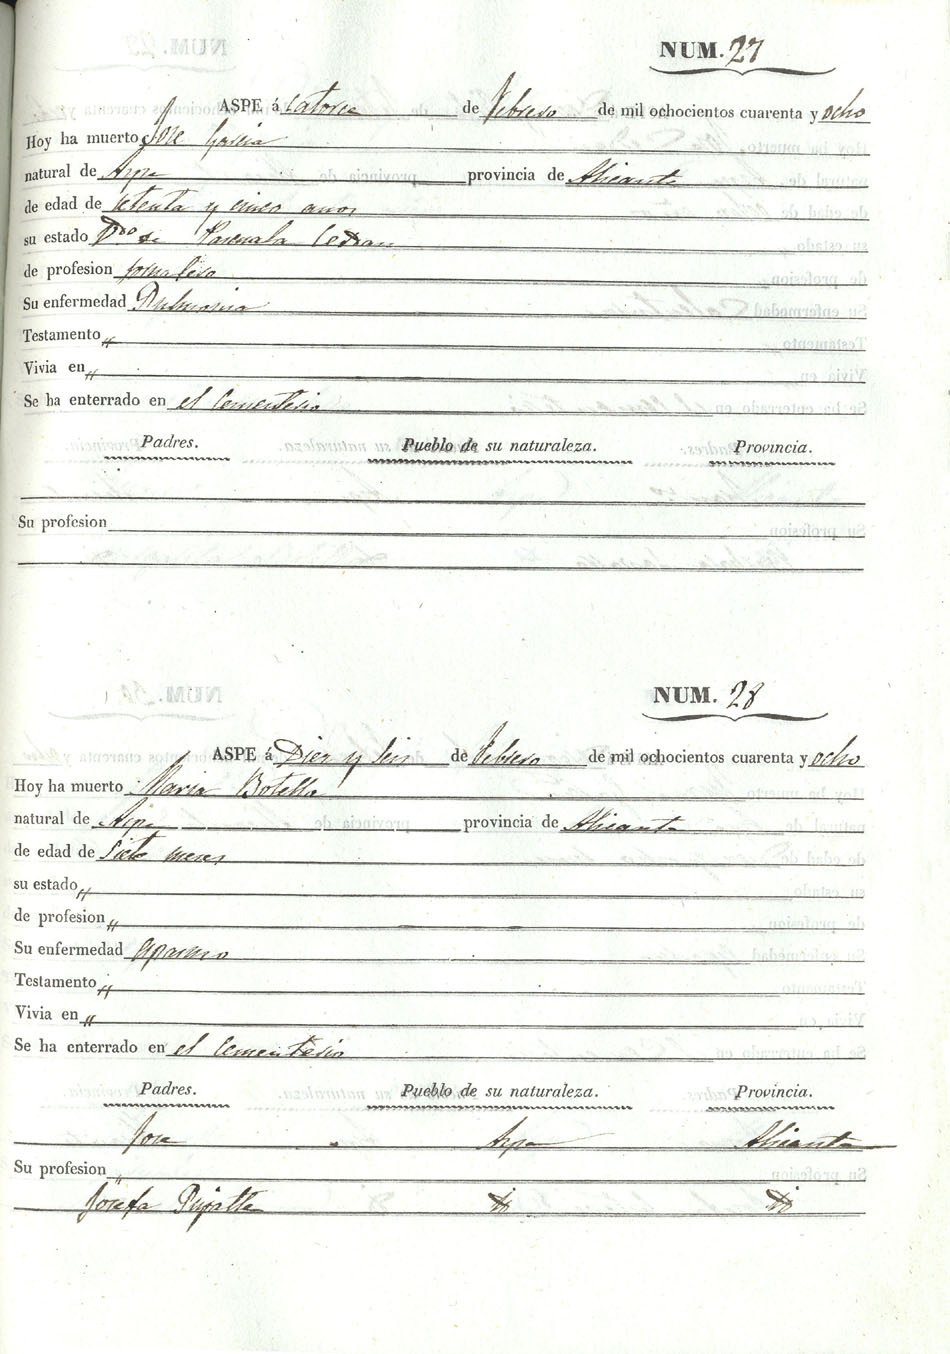 NUM. 27
ASPE á Catorce de Febrero de mil ochocientos cuarenta y ocho
Hoy ha muerto Jose Garcia
natural de Aspe provincia de Alicante
de edad de setenta y cinco años
su estado V.do de Pascuala Cedran
de profesion jornalero
Su enfermedad Pulmonia
Testamento „
Vivia en „
Se ha enterrado en el Cementerio
Padres. Pueblo de su naturaleza. Provincia.
Su profesion
NUM. 28
ASPE á Diez y seis de Febrero de mil ochocientos cuarenta y ocho
Hoy ha muerto Maria Botella
natural de Aspe provincia de Alicante
de edad de siete meses
su estado „
de profesion „
Su enfermedad
Testamento „
Vivia en „
Se ha enterrado en el Cementerio
Padres. Pueblo de su naturaleza. Provincia.
Jose Aspe Alicante
Su profesion „
Josefa Pujalte id id